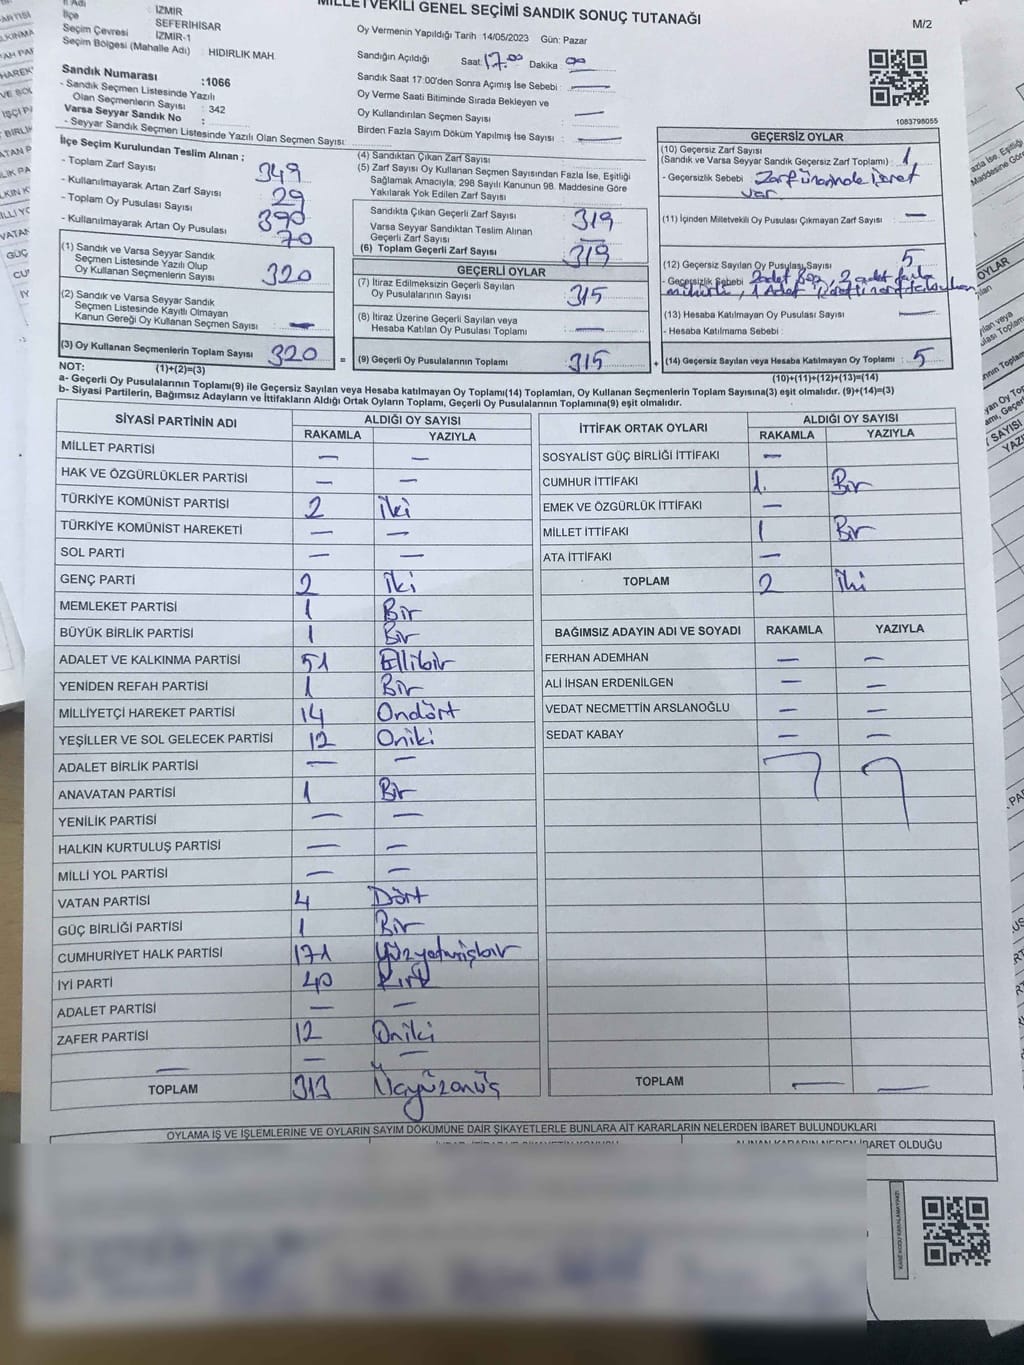 MİLLETVEKİLİ GENEL SEÇİMİ SANDIK SONUÇ TUTANAĞI
M/2
İl Adı : İZMİR
İlçe : SEFERİHİSAR
Seçim Çevresi : İZMİR-1
Seçim Bölgesi (Mahalle Adı) : HIDIRLIK MAH.
Oy Vermenin Yapıldığı Tarih :14/05/2023 Gün: Pazar
Sandığın Açıldığı Saat 17.00 Dakika 00
Sandık Saat 17:00'den Sonra Açımış İse Sebebi : —
Oy Verme Saati Bitiminde Sırada Bekleyen ve
Oy Kullandırılan Seçmen Sayısı : —
Birden Fazla Sayım Döküm Yapılmış İse Sayısı : —
Sandık Numarası :1066
- Sandık Seçmen Listesinde Yazılı
Olan Seçmenlerin Sayısı : 342
Varsa Seyyar Sandık No :
- Seyyar Sandık Seçmen Listesinde Yazılı Olan Seçmen Sayısı:
1083798055
İlçe Seçim Kurulundan Teslim Alınan ;
- Toplam Zarf Sayısı 349
- Kullanılmayarak Artan Zarf Sayısı 29
- Toplam Oy Pusulası Sayısı 390
- Kullanılmayarak Artan Oy Pusulası 70
(1) Sandık ve Varsa Seyyar Sandık
Seçmen Listesinde Yazılı Olup
Oy Kullanan Seçmenlerin Sayısı 320
(2) Sandık ve Varsa Seyyar Sandık
Seçmen Listesinde Kayıtlı Olmayan
Kanun Gereği Oy Kullanan Seçmen Sayısı : —
(3) Oy Kullanan Seçmenlerin Toplam Sayısı 320
(4) Sandıktan Çıkan Zarf Sayısı
(5) Zarf Sayısı Oy Kullanan Seçmen Sayısından Fazla İse, Eşitliği
Sağlamak Amacıyla; 298 Sayılı Kanunun 98. Maddesine Göre
Yakılarak Yok Edilen Zarf Sayısı
Sandıkta Çıkan Geçerli Zarf Sayısı 319
Varsa Seyyar Sandıktan Teslim Alınan
Geçerli Zarf Sayısı —
(6) Toplam Geçerli Zarf Sayısı 319
GEÇERLİ OYLAR
(7) İtiraz Edilmeksizin Geçerli Sayılan
Oy Pusulalarının Sayısı 315
(8) İtiraz Üzerine Geçerli Sayılan veya
Hesaba Katılan Oy Pusulası Toplamı : —
= (9) Geçerli Oy Pusulalarının Toplamı 315 +
GEÇERSİZ OYLAR
(10) Geçersiz Zarf Sayısı
(Sandık ve Varsa Seyyar Sandık Geçersiz Zarf Toplamı) : 1
- Geçersizlik Sebebi Zarf üzerinde işaret
var.
(11) İçinden Milletvekili Oy Pusulası Çıkmayan Zarf Sayısı : —
(12) Geçersiz Sayılan Oy Pusulası Sayısı 5
- Geçersizlik Sebebi 2 adet boş, 2 adet fazla
mühürlü, 1 Adet
(13) Hesaba Katılmayan Oy Pusulası Sayısı : —
- Hesaba Katılmama Sebebi :
(14) Geçersiz Sayılan veya Hesaba Katılmayan Oy Toplamı : 5
NOT: (1)+(2)=(3)
(10)+(11)+(12)+(13)=(14)
a- Geçerli Oy Pusulalarının Toplamı(9) ile Geçersiz Sayılan veya Hesaba katılmayan Oy Toplamı(14) Toplamları, Oy Kullanan Seçmenlerin Toplam Sayısına(3) eşit olmalıdır. (9)+(14)=(3)
b- Siyasi Partilerin, Bağımsız Adayların ve İttifakların Aldığı Ortak Oyların Toplamı, Geçerli Oy Pusulalarının Toplamına(9) eşit olmalıdır.
SİYASİ PARTİNİN ADI ALDIĞI OY SAYISI
RAKAMLA YAZIYLA
MİLLET PARTİSİ — —
HAK VE ÖZGÜRLÜKLER PARTİSİ — —
TÜRKİYE KOMÜNİST PARTİSİ 2 iki
TÜRKİYE KOMÜNİST HAREKETİ — —
SOL PARTİ — —
GENÇ PARTİ 2 iki
MEMLEKET PARTİSİ 1 Bir
BÜYÜK BİRLİK PARTİSİ 1 Bir
ADALET VE KALKINMA PARTİSİ 51 Ellibir
YENİDEN REFAH PARTİSİ 1 Bir
MİLLİYETÇİ HAREKET PARTİSİ 14 Ondört
YEŞİLLER VE SOL GELECEK PARTİSİ 12 Oniki
ADALET BİRLİK PARTİSİ — —
ANAVATAN PARTİSİ 1 Bir
YENİLİK PARTİSİ — —
HALKIN KURTULUŞ PARTİSİ — —
MİLLİ YOL PARTİSİ — —
VATAN PARTİSİ 4 Dört
GÜÇ BİRLİĞİ PARTİSİ 1 Bir
CUMHURİYET HALK PARTİSİ 171 Yüzyetmişbir
İYİ PARTİ 40 Kırk
ADALET PARTİSİ — —
ZAFER PARTİSİ 12 Oniki
— — —
TOPLAM 313 Üçyüzonüç
İTTİFAK ORTAK OYLARI ALDIĞI OY SAYISI
RAKAMLA YAZIYLA
SOSYALİST GÜÇ BİRLİĞİ İTTİFAKI —
CUMHUR İTTİFAKI 1. Bir
EMEK VE ÖZGÜRLÜK İTTİFAKI —
MİLLET İTTİFAKI 1 Bir
ATA İTTİFAKI —
TOPLAM 2 iki
BAĞIMSIZ ADAYIN ADI VE SOYADI RAKAMLA YAZIYLA
FERHAN ADEMHAN — —
ALİ İHSAN ERDENİLGEN — —
VEDAT NECMETTİN ARSLANOĞLU — —
SEDAT KABAY — —
TOPLAM — —
OYLAMA İŞ VE İŞLEMLERİNE VE OYLARIN SAYIM DÖKÜMÜNE DAİR ŞİKAYETLERLE BUNLARA AİT KARARLARIN NELERDEN İBARET BULUNDUKLARI
ALINAN KARARIN NEDEN İBARET OLDUĞU